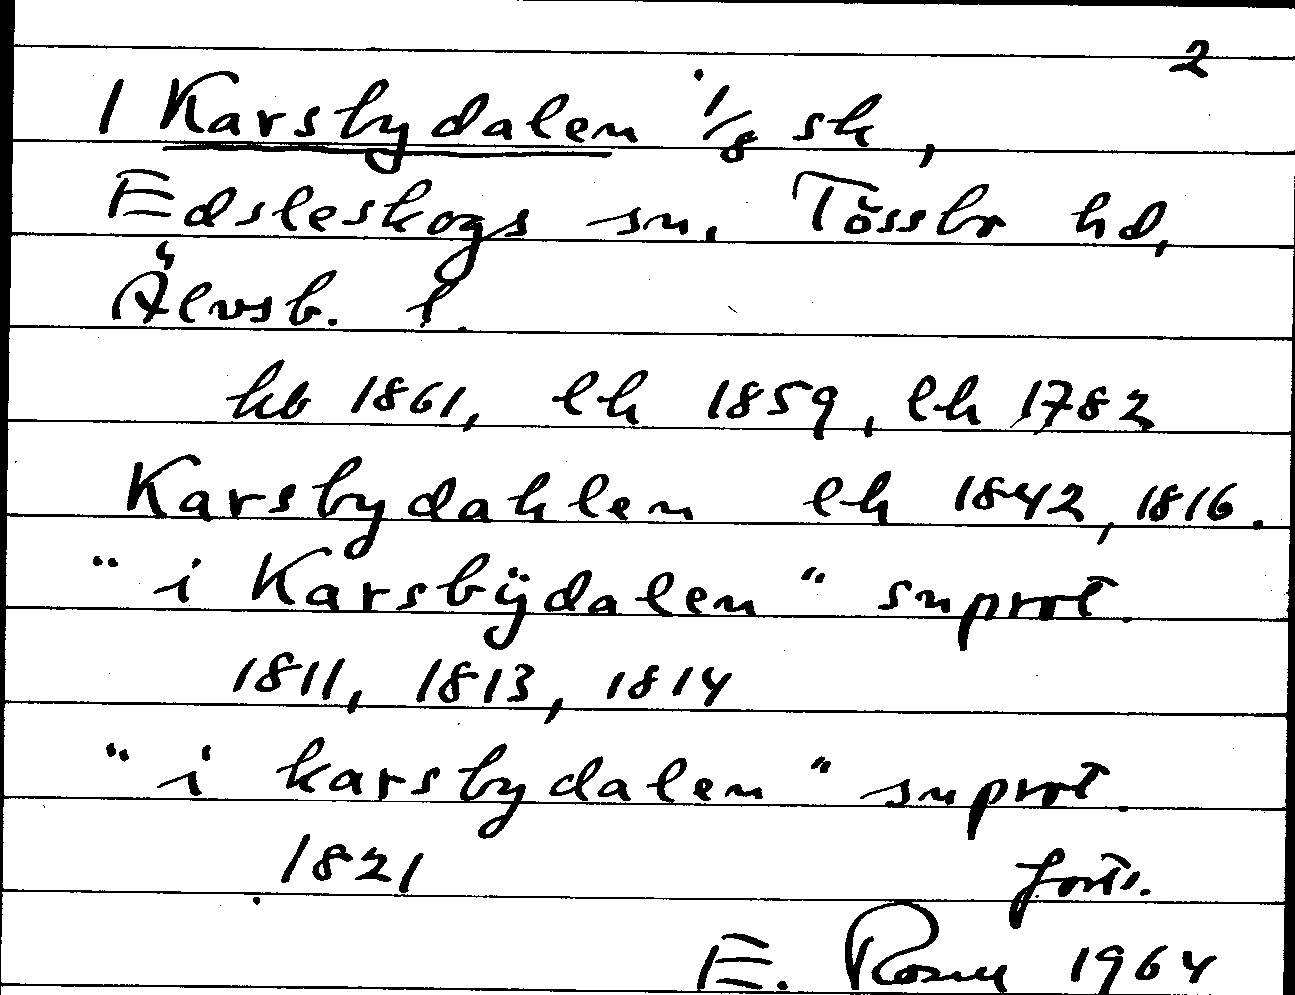 2
1 Karsbydalen 1/8 sk,
Edsleskogs sn. Tössbo hd,
Älvsb. l.
hb 1861, lh 1859, lh 1782
Karsbydahlen lh 1842, 1816.
"i Karsbÿdalen" snprot.
1811, 1813, 1814
"i karsbydalen" snprot.
1821 forts.
E. 1964